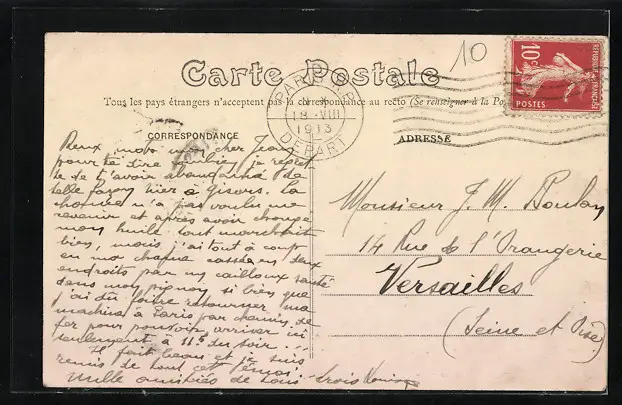 10
10c
REPUBLIQUE FRANÇAISE
POSTES
Carte Postale
Tous les pays étrangers n'acceptent pas la correspondance au recto (Se renseigner à la Po
PARIS
18 -VIII
1913
DEPART
CORRESPONDANCE
ADRESSE
Deux mots mon cher Jean
pour te dire combien je regret
te de t'avoir abandonné de
telle façon hier à Gisors. La
chance n'a pas voulu me
revenir et après avoir changé
mon huile tout marchait
bien, mais j'ai tout à coup
eu ma chaine cassée en deux
endroits par un cailloux sauté
dans mon pignon si bien que
j'ai du faire retourner ma
machine à Paris par chemin de
fer pour pouvoir arriver ici
seulement à 11h du soir.
Il fait beau et je suis
remis de tout cet émoi
Mille amitiés de tous trois
Monsieur J. M. Boulan
14 Rue de l'Orangerie
Versailles
(Seine et Oise)